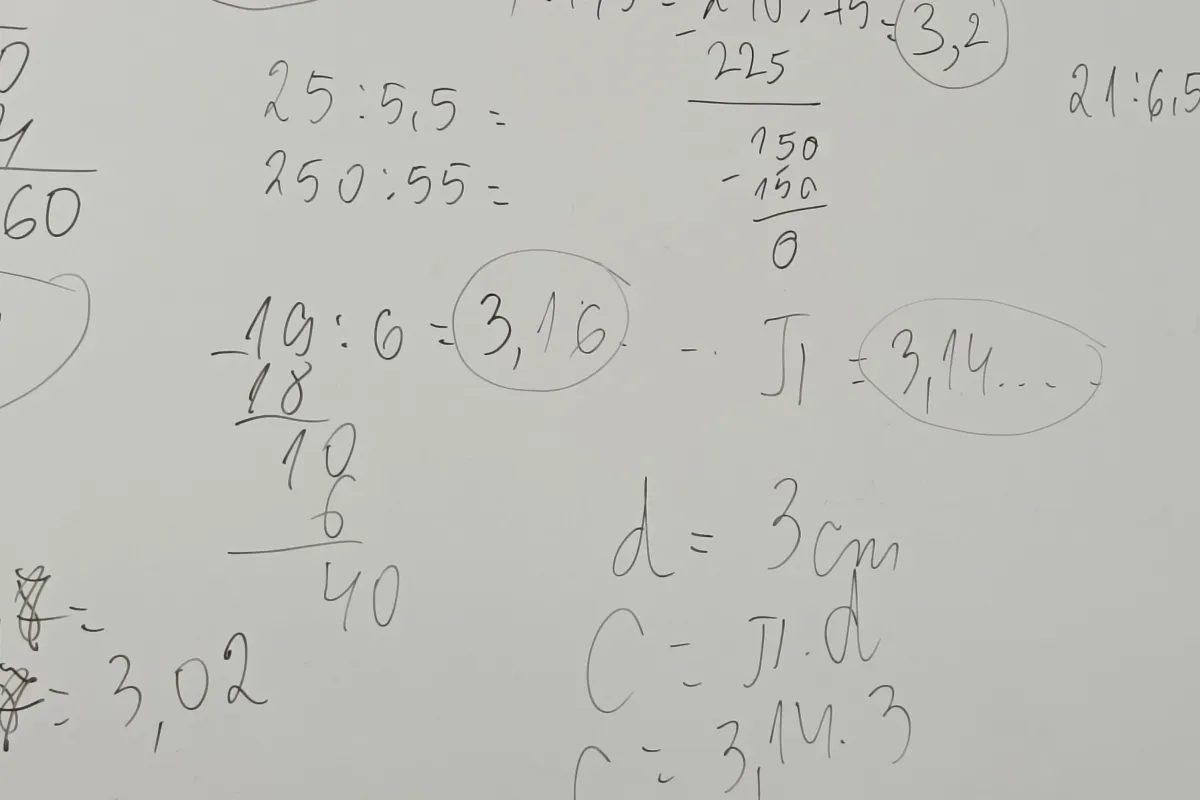 = 3,2
225
150
- 150
0
21:6,5
25:5,5 =
250:55 =
60
19:6 = 3,16
18
10
6
40
- π = 3,14...
d = 3cm
C = π.d
C = 3,14.3
=
= 3,02